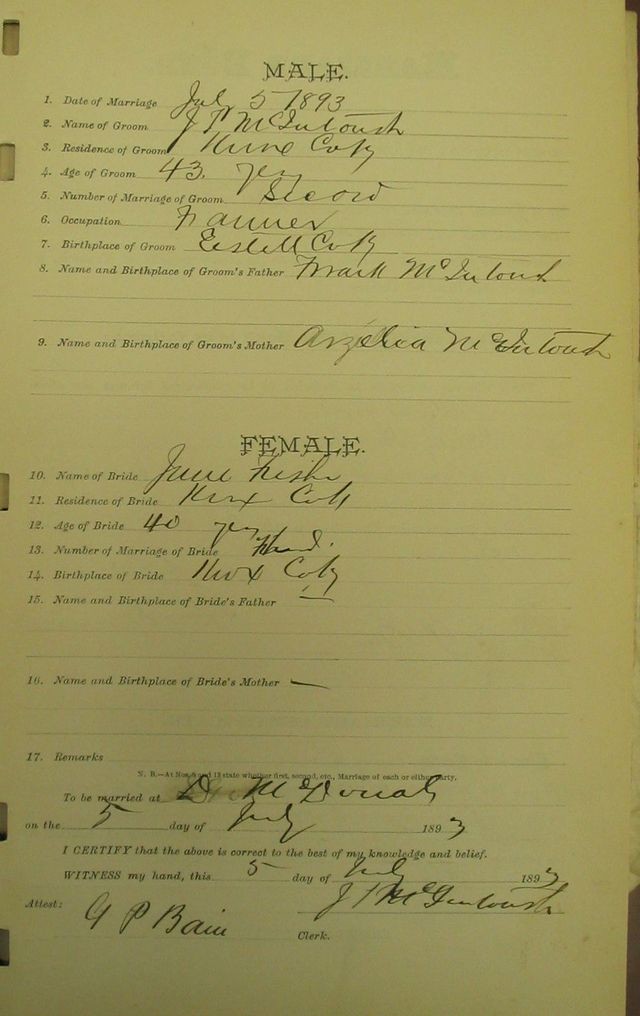 MALE.
1. Date of Marriage July 5 1893
2. Name of Groom J P McIntoush
3. Residence of Groom Knox Co Ky
4. Age of Groom 43 yrs
5. Number of Marriage of Groom Second
6. Occupation Farmer
7. Birthplace of Groom Estell Co Ky
8. Name and Birthplace of Groom's Father Frank McIntoush
9. Name and Birthplace of Groom's Mother Arzelia McIntoush
FEMALE.
10. Name of Bride June
11. Residence of Bride Knox Co Ky
12. Age of Bride 40 yrs
13. Number of Marriage of Bride
14. Birthplace of Bride Knox Co Ky
15. Name and Birthplace of Bride's Father —
16. Name and Birthplace of Bride's Mother —
17. Remarks
N. B.—At Nos. 5 and 13 state whether first, second, etc., Marriage of each or either party.
To be married at D McDonals
on the 5 day of July 1893
I CERTIFY that the above is correct to the best of my knowledge and belief.
WITNESS my hand, this 5 day of July 1893
J P McIntoush
Attest: G P Bain Clerk.